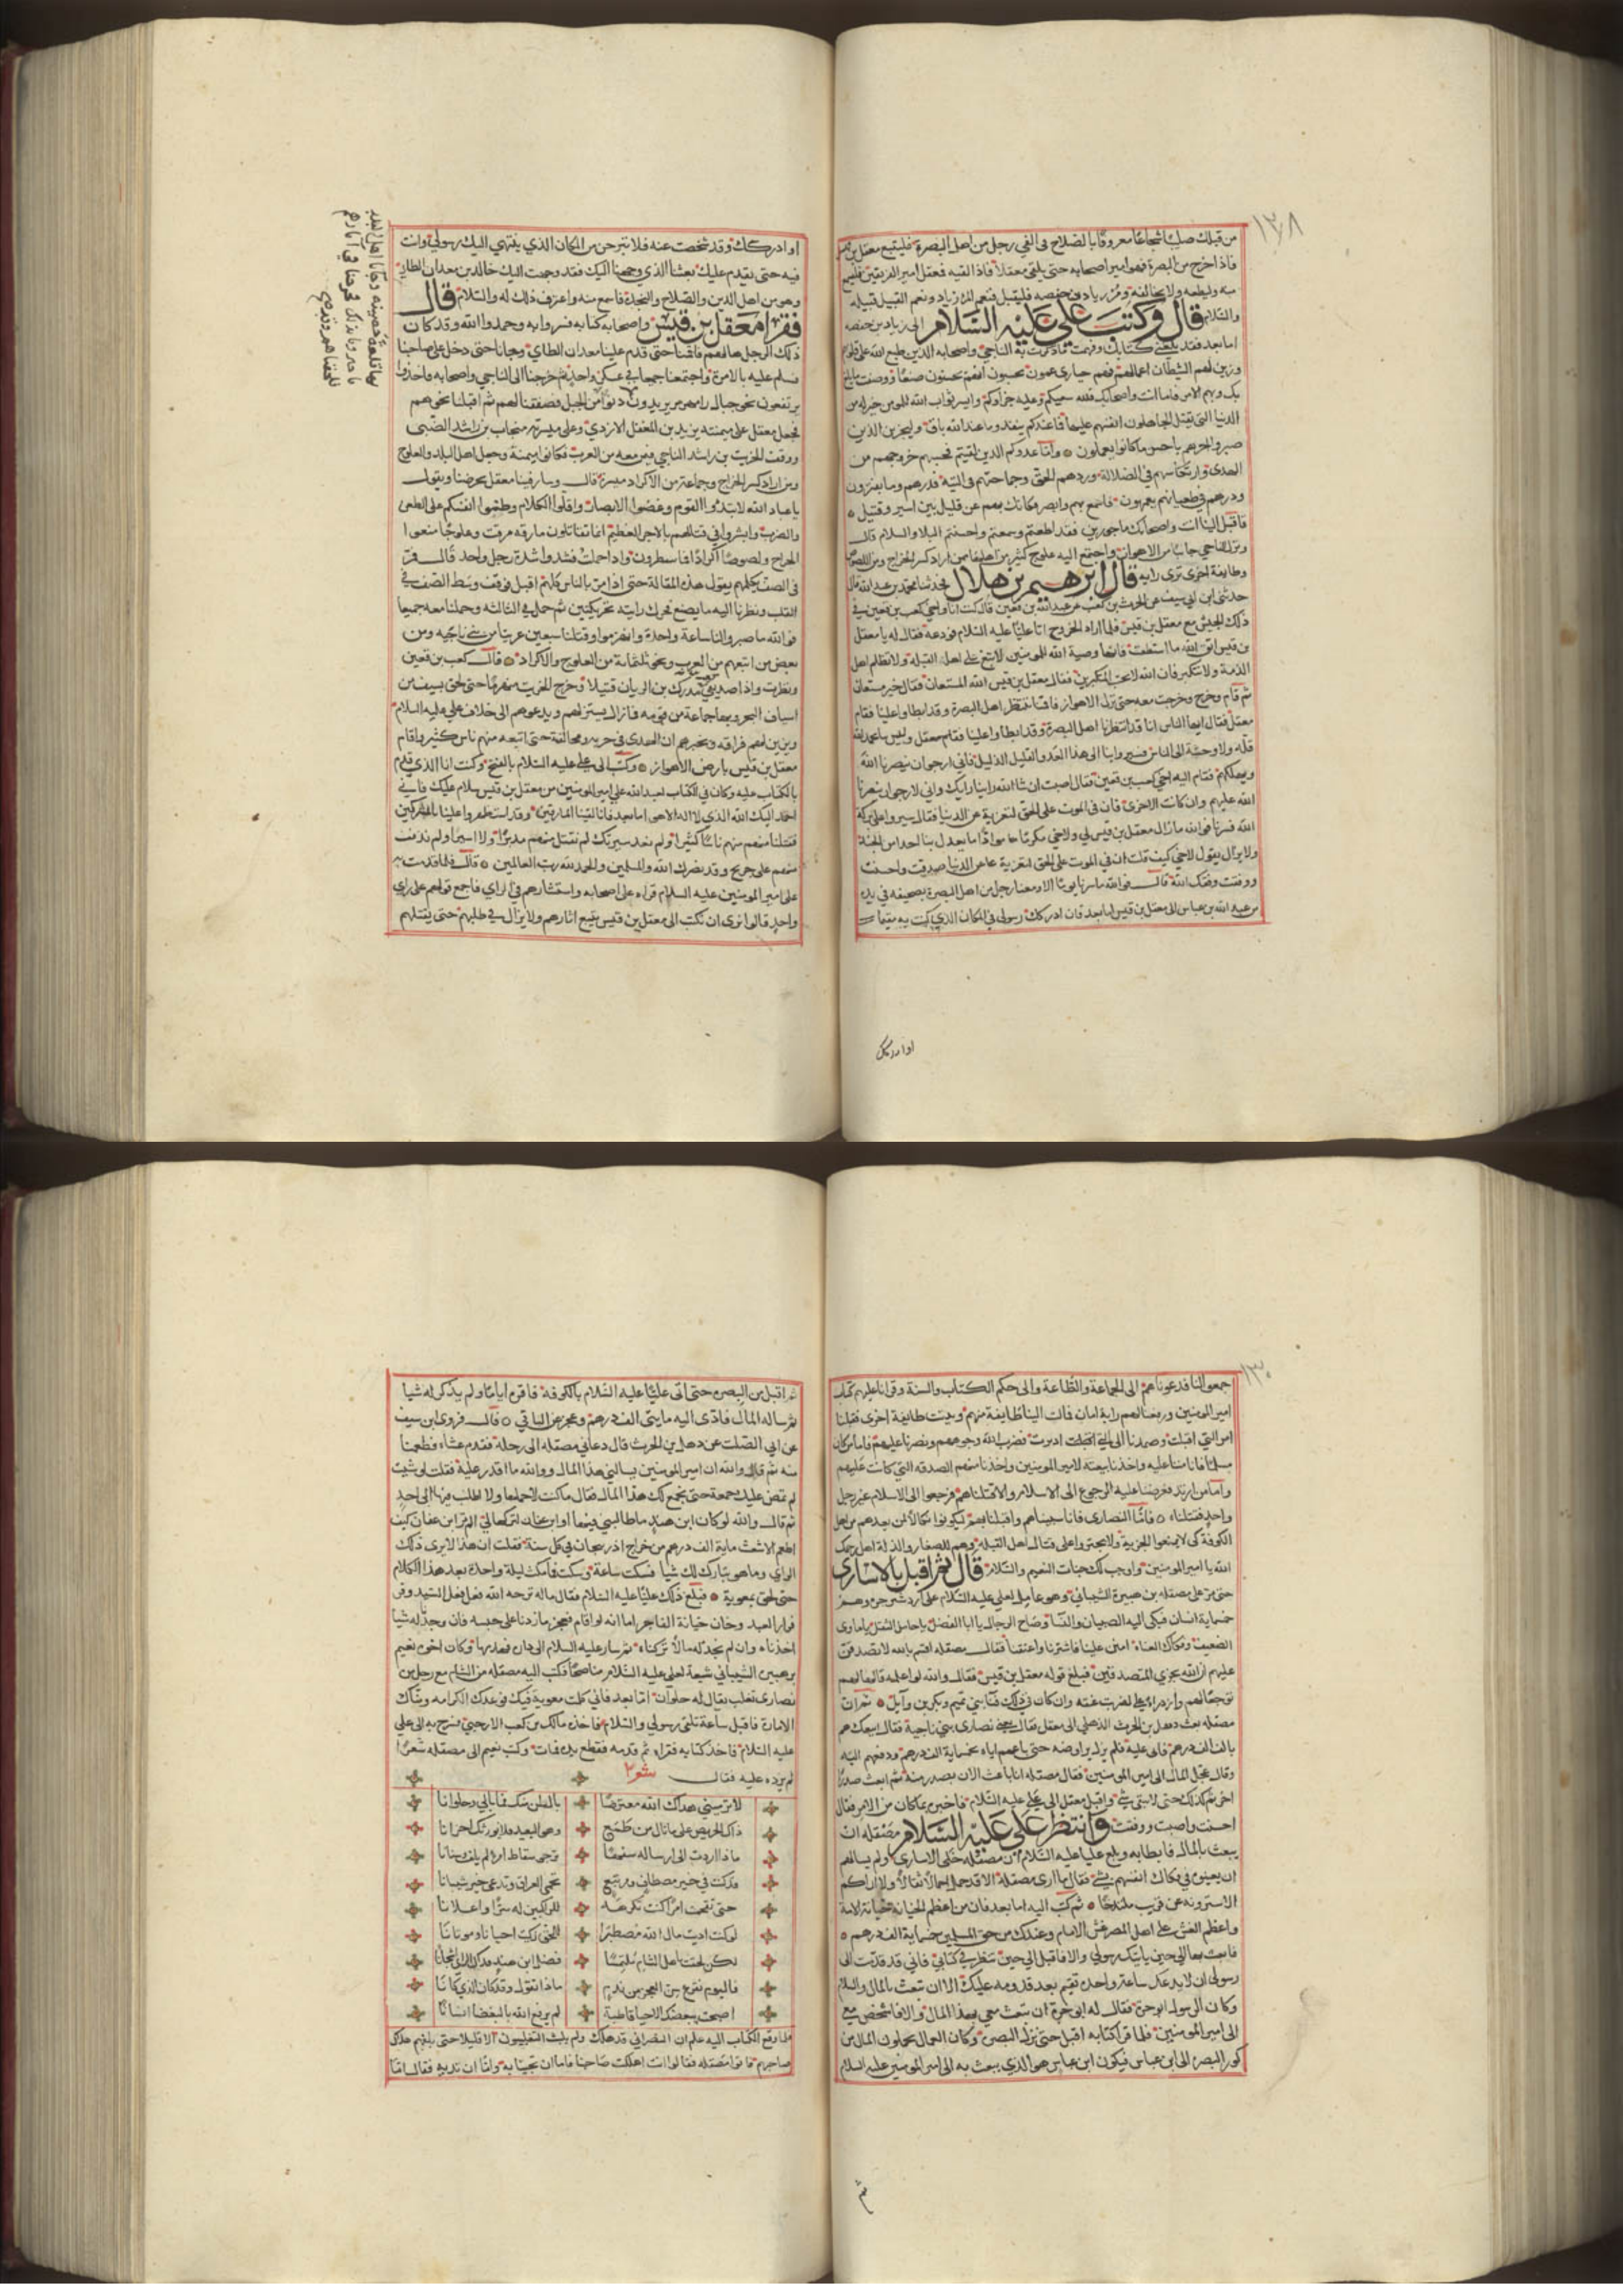 ١٢٨
من قبلك صليبا شجاعا معروفا بالصلاح في الفي رجل من اهل البصرة فليتبع معقل بن قيس
فاذا خرج من البصرة فهو امير اصحابه حتى يلقى معقلا فاذا لقيه فمعقل امير الفريقين فليسمع
منه وليطعه ولا يخالفه ومر زياد بن خصفه فليقبل فنعم المرؤ زياد ونعم القبيل قبيله
والسلام قال وكتب علي عليه السلام الى زياد بن خصفه
اما بعد فقد بلغني كتابك وفهمت ما ذكرت به الناجي واصحابه الذين طبع الله على قلوبهم
وزين لهم الشيطان اعمالهم فهم حيارى عمون يحسبون انهم يحسنون صنعا ووصفت ما بلغ
بك وبهم الامر فاما انت واصحابك فلله سعيكم وعليه جزاؤكم وايسر ثواب الله للمومن خير له من
الدنيا التي يقبل الجاهلون انفسهم عليها فما عندكم ينفد وما عند الله باق وليجزين الذين
صبروا اجرهم باحسن ما كانوا يعملون واما عدوكم الذين لقيتم فحسبهم خروجهم من
الهدى وارتكاسهم في الضلالة وردهم الحق وجماحهم في التيه فذرهم وما يفترون
ودرهم في طغيانهم يعمهون فاسمع بهم وابصر فكانك بهم عن قليل بين اسير وقتيل
فاقبل الينا انت واصحابك ماجورين فقد اطعتم وسمعتم واحسنتم البلا والسلام قال
ونزل الناجي جانبا من الاهواز واجتمع اليه علوج كثير من اهلها ممن اراد كسر الخراج ومن اللصوص
وطايفة اخرى ترى رايه قال ابرهيم بن هلال فحدثنا محمد بن عبد الله قال
حدثني ابن ابي سيف عن الحرث بن كعب عن عبد الله بن قعين قال كنت انا واخي كعب بن قعين في
ذلك الجيش مع معقل بن قيس فلما اراد الخروج اتا عليا عليه السلام فودعه فقال له يا معقل
بن قيس اتق الله ما استطعت فانها وصية الله للمومنين لا تبغ على اهل القبله ولا تظلم اهل
الذمة ولا تتكبر فان الله لا يحب المتكبرين فقال معقل بن قيس الله المستعان فقال خير مستعان
ثم قام وخرج وخرجت معه حتى نزل الاهواز فاقمنا ننتظر اهل البصرة وقد ابطاوا علينا فقام
معقل فقال ايها الناس انا قد انتظرنا اهل البصرة وقد ابطاوا علينا فقام معقل وليس بنا بحمد الله
قلة ولا وحشة الى الناس فسيروا بنا الى هذا العدو القليل الذليل فاني ارجوا ان ينصرنا الله
ويهلكهم فقام اليه اخي كعب بن قعين فقال اصبت ان شا الله راينا رايك واني لارجوا ان ينصرنا
الله عليهم وان كانت الاخرى فان في الموت على الحق لتعزية عن الدنيا فقال سيروا على بركة
الله فسرنا فوالله ما زال معقل بن قيس لي ولاخي مكرما ما يعدل بنا احدا من الجند
ولا يزال يقول لاخي كيف قلت ان في الموت على الحق لتعزية عن الدنيا صدقت واحسنت
ووفقت وفقك الله قال فوالله ما سرنا يوما الا ادركنا رجل من اهل البصرة بصحيفة في يده
من عبد الله بن عباس الى معقل بن قيس اما بعد فان ادركك رسولي في المكان الذي كنت به مقيما
او ادركك
او ادركك وقد شخصت عنه فلا تبرحن من المكان الذي ينتهي اليك رسولي وانت
فيه حتى يقدم عليك بعثنا الذي وجهنا اليك فقد وجهت اليك خالد بن معدان الطاي
وهو من اهل الدين والصلاح والنجدة فاسمع منه واعرف ذلك له والسلام قال
فقرا معقل بن قيس واصحابه كتابه فسروا به وحمدوا الله وقد كان
ذلك الرجل هالهم فاقمنا حتى قدم علينا معدان الطاي وجانا حتى دخل على صاحبنا
فسلم عليه بالامرة واجتمعنا جميعا في عسكر واحد ثم خرجنا الى الناجي واصحابه فاخذوا
يرتفعون نحو جبال رامهرمز يريدون دنوا من الجبل فصففنا لهم ثم اقبلنا نحوهم
فجعل معقل على ميمنته يزيد بن المغفل الازدي وعلى ميسرته منجاب بن راشد الضبي
ووقف الخريت بن راشد الناجي فيمن معه من العرب فكانوا ميمنة وجعل اهل البلد والعلوج
ومن اراد كسر الخراج وجماعة من الاكراد ميسرة قال وسار فينا معقل يحرضنا ويقول
يا عباد الله لا تبدوا القوم وغضوا الابصار واقلوا الكلام وطنوا انفسكم على الطعن
والضرب وابشروا في قتالهم بالاجر العظيم انما تقاتلون مارقة مرقت وعلوجا منعوا
الخراج ولصوصا اكرادا فما ينتظرون واذا حملت فشدوا شدة رجل واحد قال فمر
في الصف يكلمهم يقول هذه المقالة حتى اذا مر بالناس كلهم اقبل فوقف وسط الصف في
القلب ونظرنا اليه ما يصنع فحرك رايته تحريكتين ثم حمل في الثالثه وحملنا معه جميعا
فوالله ما صبروا لنا ساعة واحدة وانهزموا وقتلنا سبعين عربيا من بني ناجيه ومن
بعض من اتبعهم من العرب ونحو ثلثماية من العلوج والاكراد قال كعب بن قعين
ونظرت واذا صديقي مدرك بن الريان قتيلا وخرج الخريت منهزما حتى لحق بسيف من
اسياف البحر وبها جماعة من قومه فما زال يسير فيهم ويدعوهم الى خلاف علي عليه السلام
ويزين لهم فراقه ويخبرهم ان الهدى في حربه ومخالفته حتى اتبعه منهم ناس كثير واقام
معقل بن قيس بارض الاهواز وكتب الى علي عليه السلام بالفتح وكنت انا الذي قدم
بالكتاب عليه وكان في الكتاب لعبد الله علي امير المومنين من معقل بن قيس سلام عليك فاني
احمد اليك الله الذي لا اله الا هو اما بعد فانا لقينا المارقين وقد استظهروا علينا بالمشركين
فقتلنا منهم ناسا كثيرا ولم نعد سيرتك لم نقتل منهم مدبرا ولا اسيرا ولم نذفف
منهم على جريح وقد نصرك الله والمسلمين والحمد لله رب العالمين قال فلما قدمت به
على امير المومنين عليه السلام قراه على اصحابه واستشارهم في الراي فاجمع قولهم على راي
واحد قالوا نرى ان تكتب الى معقل بن قيس يتبع اثارهم ولا يزال في طلبهم حتى يقتلهم
١٣٠
جمعوا لنا فدعوناهم الى الجماعة والطاعة والى حكم الكتاب والسنة وقرانا عليهم كتاب
امير المومنين ورفعنا لهم راية امان فمالت الينا طايفة منهم وثبتت طايفة اخرى فقبلنا
امر التي اقبلت وصمدنا الى التي ادبرت فضرب الله وجوههم ونصرنا عليهم فاما من كان
مسلما فانا مننا عليه واخذنا بيعته لامير المومنين واخذنا منهم الصدقه التي كانت عليهم
واما من ارتد فعرضنا عليه الرجوع الى الاسلام والا قتلناهم فرجعوا الى الاسلام غير رجل
واحد فقتلناه واما النصارى فانا سبيناهم واقبلنا بهم ليكونوا نكالا لمن بعدهم من اهل
الذمة كي لا يمنعوا الجزية ولا يجتروا على قتال اهل القبله وهم للصغار والذلة اهل رحمك
الله يا امير المومنين واوجب لك جنات النعيم والسلام قال ثم اقبل بالاسارى
حتى مر على مصقله بن هبيرة الشيباني وهو عامل لعلي عليه السلام على اردشير خره وهم
خمسماية انسان فبكى اليه الصبيان والنسا وصاح الرجال يا ابا الفضل يا حامل الثقل يا ماوى
الضعيف وفكاك العناة امنن علينا فاشترنا واعتقنا فقال مصقله اقسم بالله لاتصدقن
عليهم ان الله يجزي المتصدقين فبلغ قوله معقل بن قيس فقال والله لو اعلمه قالها لهم
توجعا لهم وازراء علي لضربت عنقه وان كان في ذلك فنا بني تميم وبكر بن وايل ثم ان
مصقله بعث ذهل بن الحرث الذهلي الى معقل فقال بعني نصارى بني ناجية فقال ابيعكهم
بالف الف درهم فابى عليه فلم يزل يراوضه حتى باعهم اياه بخمسماية الف درهم ودفعهم اليه
وقال عجل المال الى امير المومنين فقال مصقله انا باعث الان بصدر منه ثم ابعث صدرا
اخر ثم كذلك حتى لا يبقى شي واقبل معقل الى علي عليه السلام فاخبره بما كان من الامر فقال
احسنت واصبت ووفقت وانتظر علي عليه السلام مصقله ان
يبعث بالمال فابطا به وبلغ عليا عليه السلام ان مصقله خلى الاسارى ولم يسالهم
ان يعينوه في فكاك انفسهم بشي فقال ما ارى مصقلة الا قد حمل حمالا ولا اراكم
الا سترونه عن قريب ثم كتب اليه اما بعد فان من اعظم الخيانه خيانة الامة
واعظم الغش على اهل المصر غش الامام وعندك من حق المسلمين خمسماية الف درهم
فابعث بها الى حين ياتيك رسولي والا فاقبل الى حين تنظر في كتابي فاني قد قدمت الى
رسولي ان لا يدعك ساعة واحده تقيم بعد قدومه عليك الا ان تبعث بالمال والسلام
وكان الرسول ابو حره فقال له ابو حرة ان تبعث معي بهذا المال والا فاشخص معي
الى امير المومنين فلما قرا كتابه اقبل حتى نزل البصره وكان العمال يحملون المال من
كور البصره الى ابن عباس فيكون ابن عباس هو الذي يبعث به الى امير المومنين عليه السلام
ثم
ثم اقبل من البصره حتى اتى عليا عليه السلام بالكوفه فاقره اياما ولم يذكر له شيا
ثم ساله المال فادى اليه مايتي الف درهم وعجز عن الباقي قال فروى ابن سيف
عن ابي الصلت عن ذهل بن الحرث قال دعاني مصقله الى رحله فقدم عشاء فطعمنا
منه ثم قال والله ان امير المومنين يسالني هذا المال ووالله ما اقدر عليه فقلت لو شيت
لم يمض عليك جمعة حتى تجمع لك هذا المال فقال ما كنت لاحملها ولا اطلب فيها الى احد
ثم قال والله لو كان ابن هند ما طالبني فيها او ابن عفان لتركها لي الم تر ابن عفان كيف
اطعم الاشعث ماية الف درهم من خراج اذربيجان في كل سنة فقلت ان هذا لا يرى ذلك
الراي وما هو بتارك لك شيا فسكت ساعة وسكت فما مكث ليلة واحدة بعد هذا الكلام
حتى لحق بمعوية فبلغ ذلك عليا عليه السلام فقال ماله ترحه الله فعل فعل السيد وفر
فرار العبد وخان خيانة الفاجر اما انه لو اقام فعجز ما زدنا على حبسه فان وجدنا له شيا
اخذناه وان لم نجد له مالا تركناه ثم سار عليه السلام الى داره فهدمها وكان اخوه نعيم
بن هبيرة الشيباني شيعة لعلي عليه السلام مناصحا فكتب اليه مصقله من الشام مع رجل من
نصارى تغلب يقال له حلوان اما بعد فاني كلمت معوية فيك فوعدك الكرامه ومناك
الامارة فاقبل ساعة تلقى رسولي والسلام فاخذه مالك بن كعب الارحبي فسرح به الى علي
عليه السلام فاخذ كتابه فقراه ثم قدمه فقطع يده فمات وكتب نعيم الى مصقله شعرا
لم يرده عليه فقال شعر
لا ترمينني هداك الله معترضا بالظن منك فما بالي وحلوانا
ذاك الحريص على ما نال من طمع وهو البعيد فلا يورثك احزانا
ماذا اردت الى ارساله سفها ترجو سقاط امرء لم يلف خوانا
قد كنت في خير مصطاف ومرتبع تحمي العراق وتدعى خير شيبانا
حتى تقحمت امرا كنت تكرهه للراكبين له سرا واعلانا
لو كنت اديت مال الله مصطبرا للحق زكيت احيانا وموتانا
لكن لحقت باهل الشام ملتمسا فضل ابن هند
فاليوم تقرع سن العجز من ندم ماذا تقول وقد كان الذي كانا
اصبحت يبغضك الاحيا قاطبة لم يرفع الله بالبغضا انسانا
فلما وقع الكتاب اليه علم ان النصراني قد هلك ولم يلبث التغلبيون الا قليلا حتى بلغهم هلاك
صاحبهم فاتوا مصقله فقالوا انت اهلكت صاحبنا فاما ان تجيئنا به واما ان تديه فقال اما